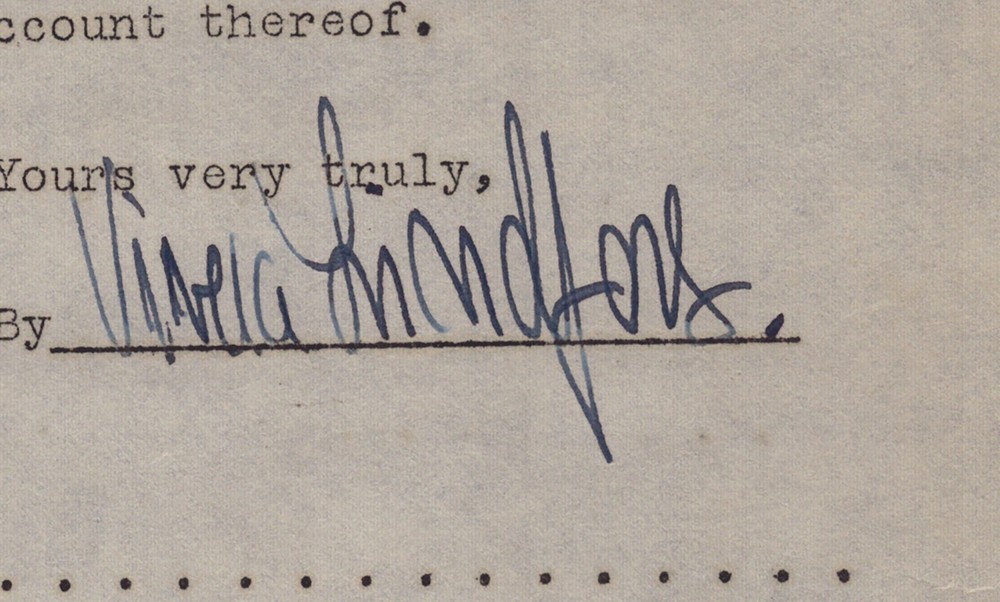 ccount thereof.
Yours very truly,
By Viveca Lindfors.
. . . . . . . . . . . . . . .